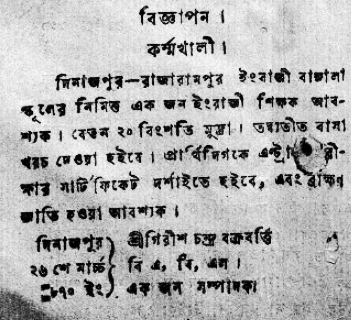 বিজ্ঞাপন ।
কর্ম্মখালী ।
দিনাজপুর—রাজারামপুর ইংরাজী বাঙ্গালা
স্কুলের নিমিত্ত এক জন ইংরাজী শিক্ষক আব-
শ্যক । বেতন ২০ বিংশতি মুদ্রা । তদ্ব্যতীত বাসা
খরচ দেওয়া হইবে । প্রার্থিদিগকে
ক্ষার সার্টিফিকেট দর্শাইতে হইবে, এবং ব্রাহ্মণ
জাতি হওয়া আবশ্যক ।
দিনাজপুর শ্রীগিরীশ চন্দ্র চক্রবর্ত্তি
২৬ শে মার্চ্চ বি এ, বি, এল ।
ইং এক জন সম্পাদক।